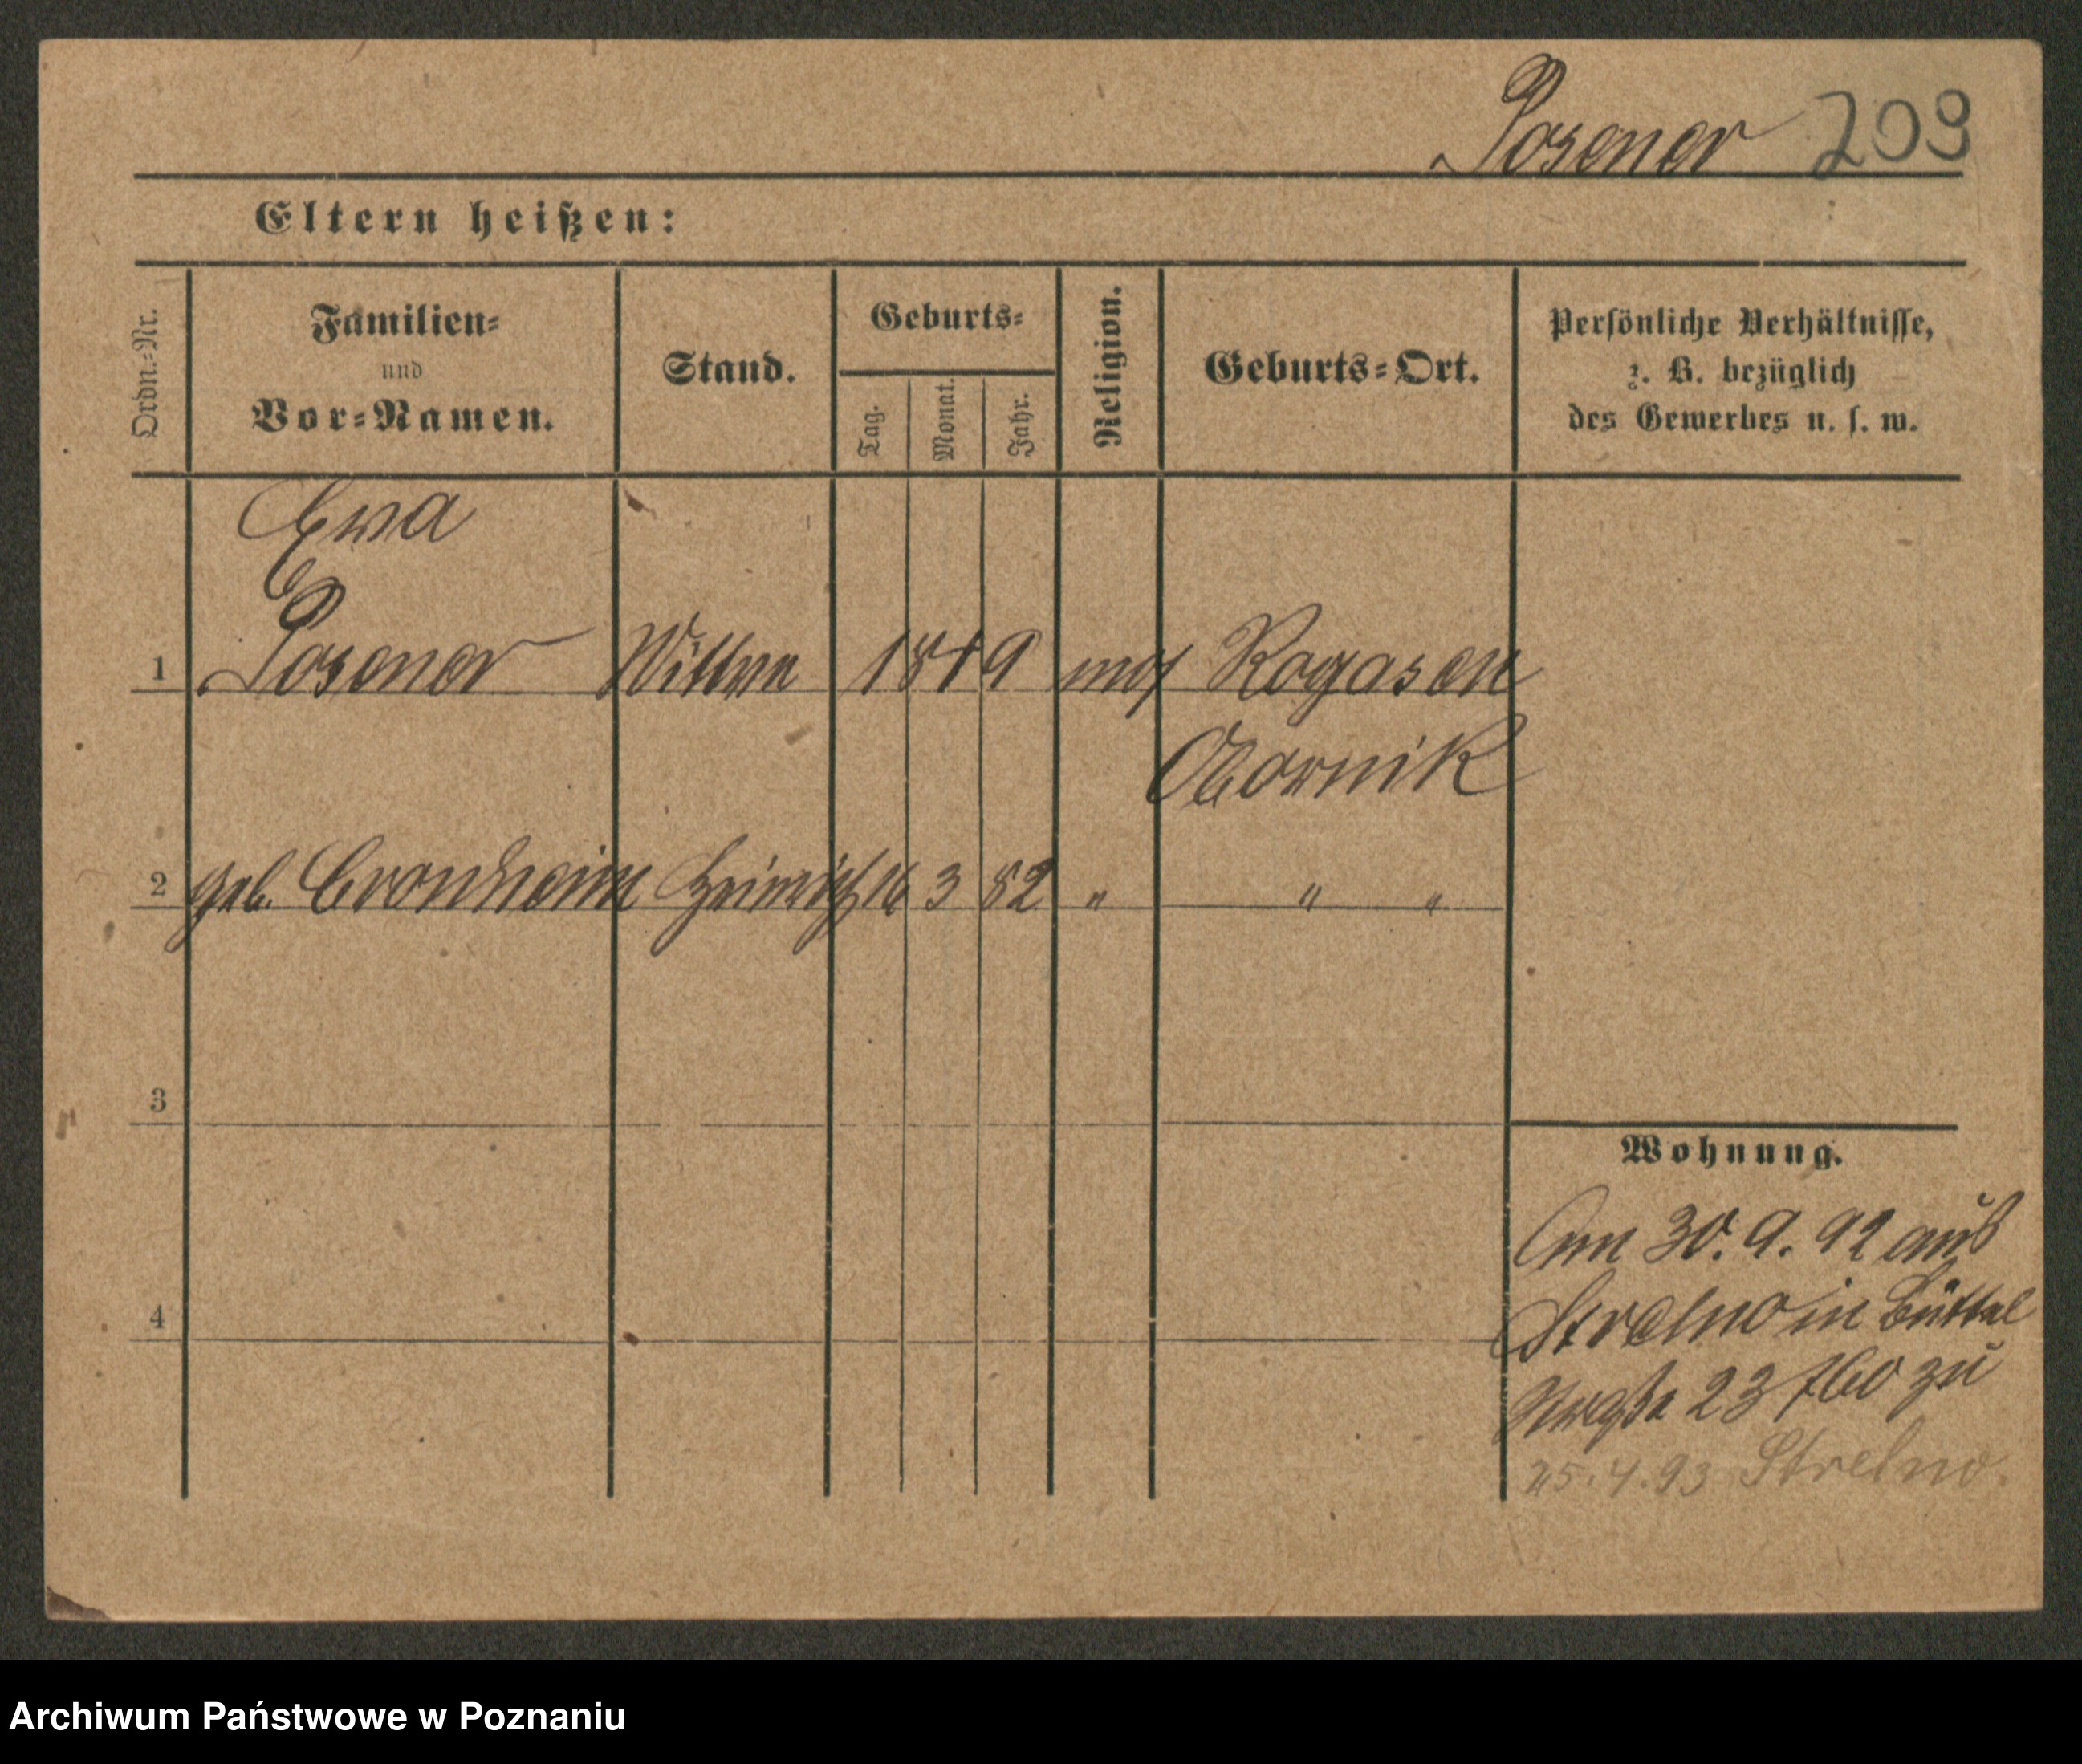 Posener 209
Eltern heißen:
Ordn.-Nr.
Familien-
und
Vor-Namen.
Stand.
Geburts-
Tag.
Monat.
Jahr.
Religion.
Geburts-Ort.
Persönliche Verhältnisse,
z. B. bezüglich
des Gewerbes u. s. w.
Ewa
1 Posener Wittwe 1819 mos Rogasen
Obornik
2 geb. Cronheim Heinrich 16 3 82 " " "
3
4
Wohnung.
Am 30. 9. 92 aus
Strelno in Büttel
Straße 23 zu
25.4.93 Strelno.
Archiwum Państwowe w Poznaniu